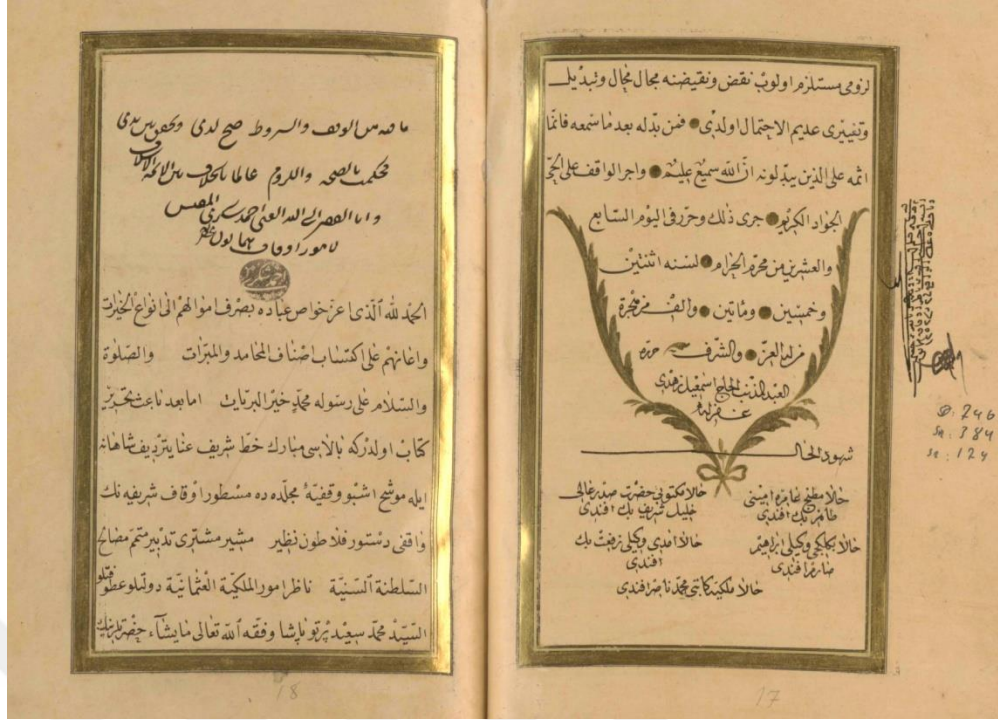 لزومى مستلزم اولوب نقض ونقيضنه مجال محال وتبديل
وتغييرى عديم الاحتمال اولدى فمن بدله بعد ما سمعه فانما
اثمه على الذين يبدلونه ان الله سميع عليم واجر الواقف على الحى
الجواد الكريم جرى ذلك وحرر فى اليوم السابع
والعشرين من محرم الحرام لسنه اثنتين
وخمسين ومأتين والف من هجرة
من له العز والشرف حرره
العبد المذنب الحاج اسمعيل زهدى
غفر له
شهود الحال
حالا مطبخ عامره امينى طاهر بك افندى
حالا مكتوبئ حضرت صدر عالى خليل شريف بك افندى
حالا بكلكجى وكيلى ابراهيم صارم افندى
حالا امدى وكيلى رفعت بك افندى
حالا ملكيه كاتبى محمد ناصر افندى
D: 246
Sa: 384
Sı: 124
17
ما فيه من الوقف والشروط صح لدى وتحقق بين يدى
فحكمت بالصحه واللزوم عالما بالخلاف بين الائمه الاسلاف
وانا الفقير الى الله الغنى احمد المفتش
بامور اوقاف همايون
الحمد لله الذى اعز خواص عباده بصرف اموالهم الى انواع الخيرات
واعانهم على اكتساب اصناف المحامد والمبرات والصلوة
والسلام على رسوله محمد خير البريات اما بعد باعث تحرير
كتاب اولدركه بالاسى مبارك خط شريف عنايترديف شاهانه
ايله موشح اشبو وقفيۀ مجلده ده مسطور اوقاف شريفه نك
واقفى دستور فلاطون نظير مشير مشترى تدبير متمم مصالح
السلطنة السنية ناظر امور الملكية العثمانية دولتلو عطوفتلو
السيد محمد سعيد پرتو پاشا وفقه الله تعالى ما يشاء حضرتلرينك
18